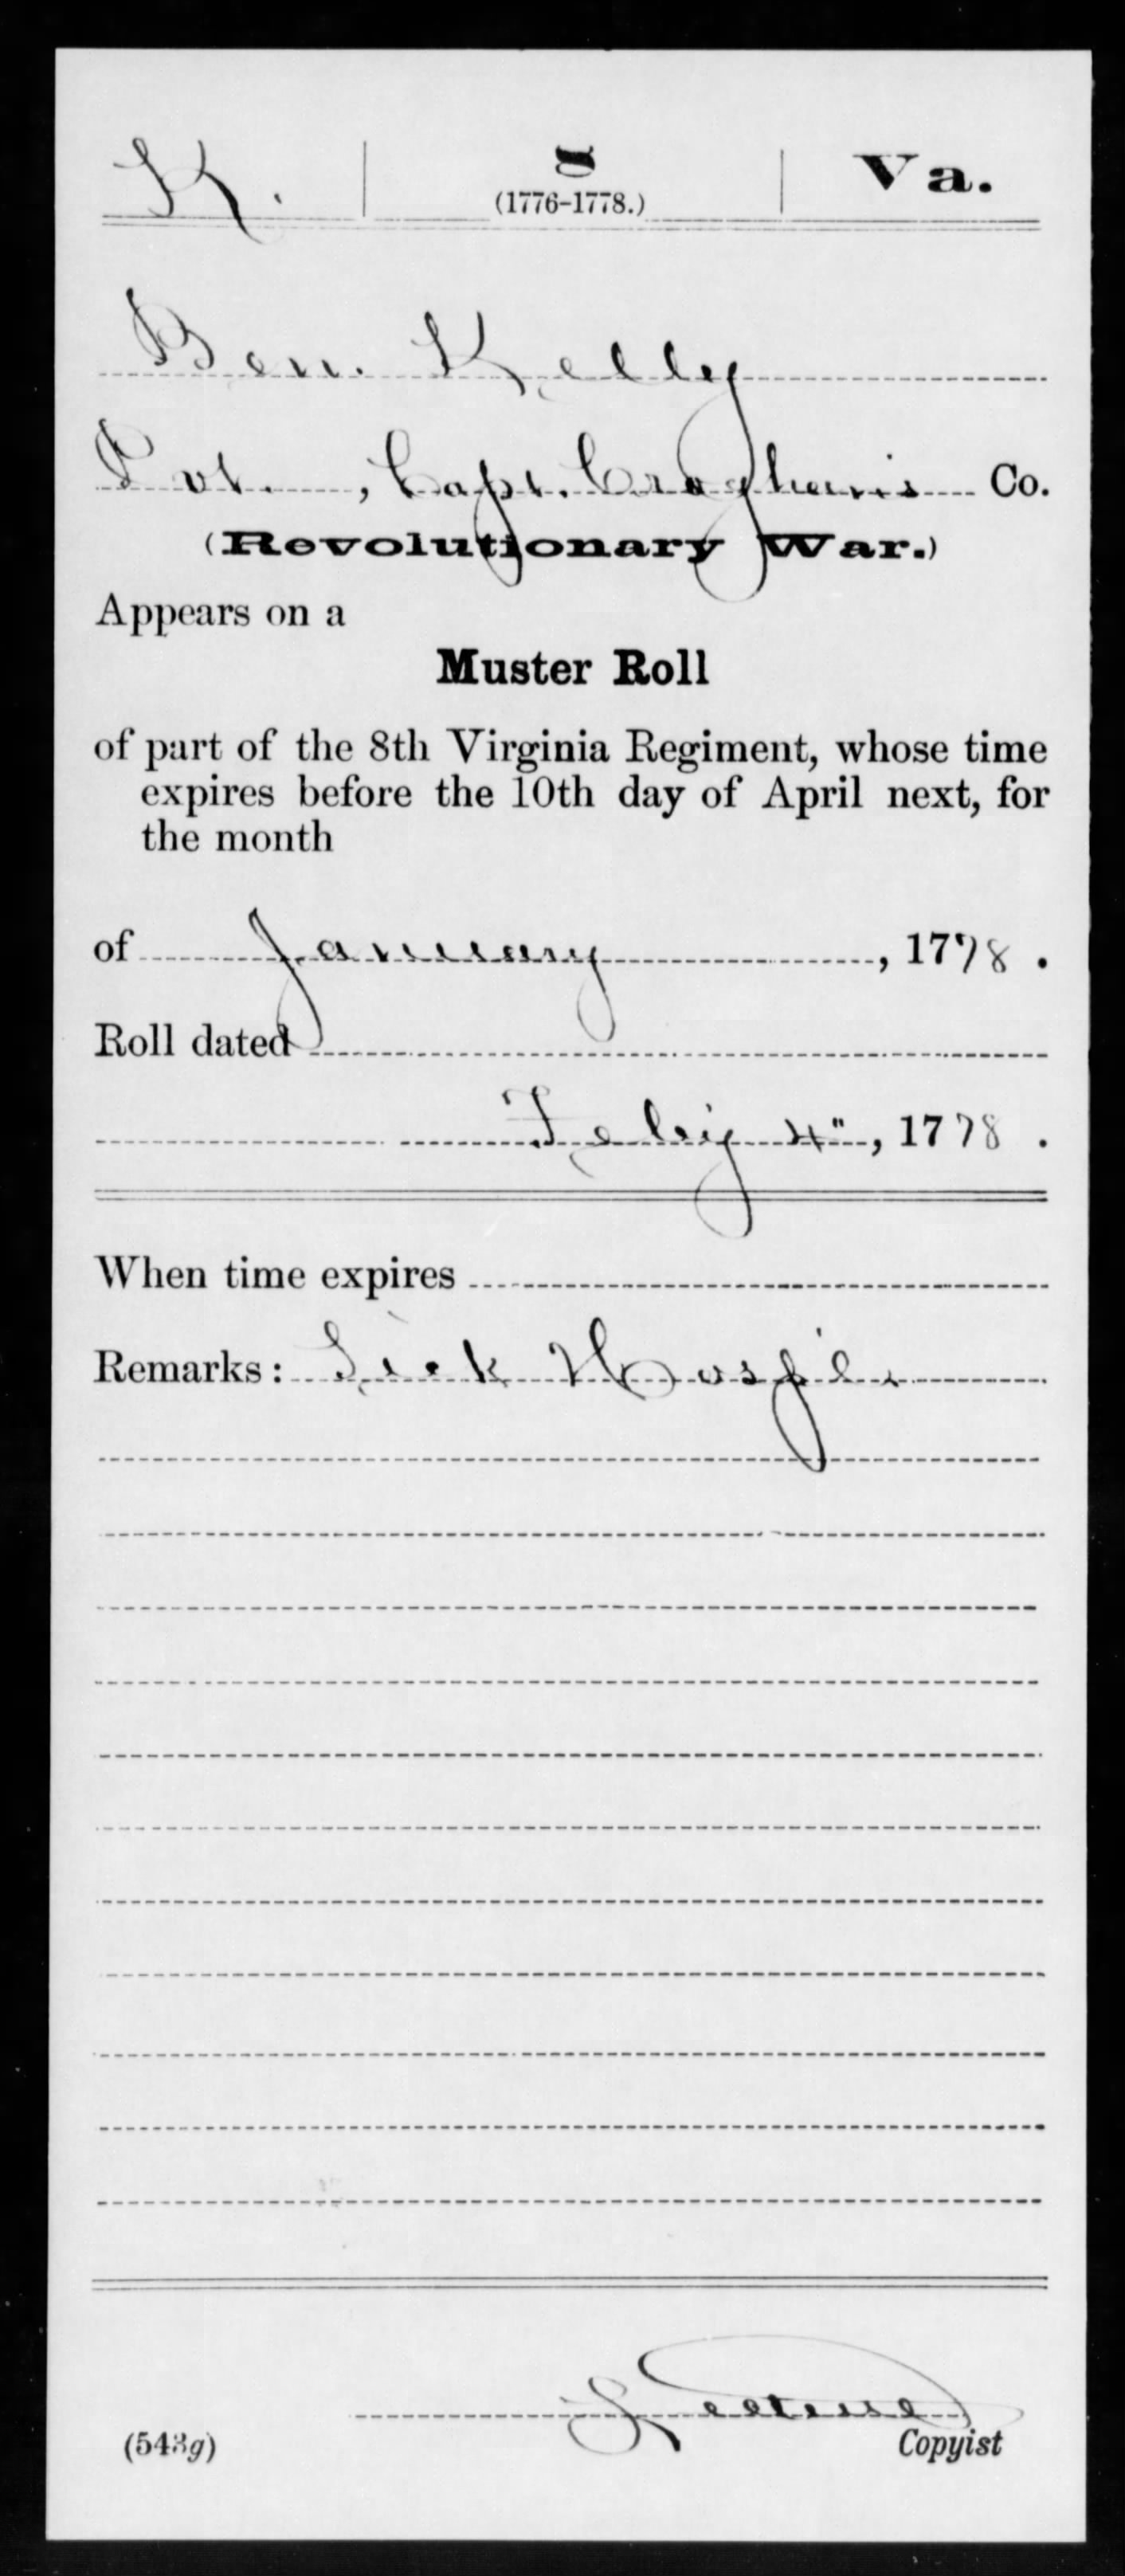 K. | 8 | Va.
(1776-1778.)
Ben. Kelly
Pvt., Capt. Croghan's Co.
(Revolutionary War.)
Appears on a
Muster Roll
of part of the 8th Virginia Regiment, whose time
expires before the 10th day of April next, for
the month
of January, 1778.
Roll dated
Feby 4", 1778.
When time expires
Remarks: Sick Hospl
(543g) Copyist